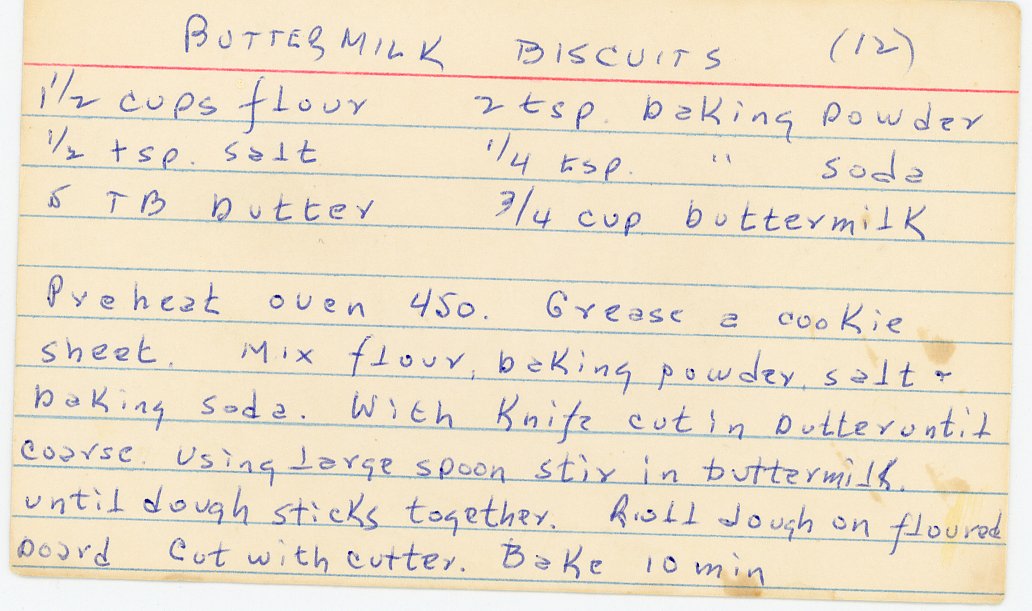 BUTTERMILK BISCUITS (12)
1 1/2 cups flour 2 tsp. baking powder
1/2 tsp. salt 1/4 tsp. " soda
5 TB butter 3/4 cup buttermilk
Preheat oven 450. Grease a cookie
sheet. Mix flour, baking powder, salt &
baking soda. With knife cut in butter until
coarse. Using large spoon stir in buttermilk.
until dough sticks together. Roll dough on floured
board Cut with cutter. Bake 10 min